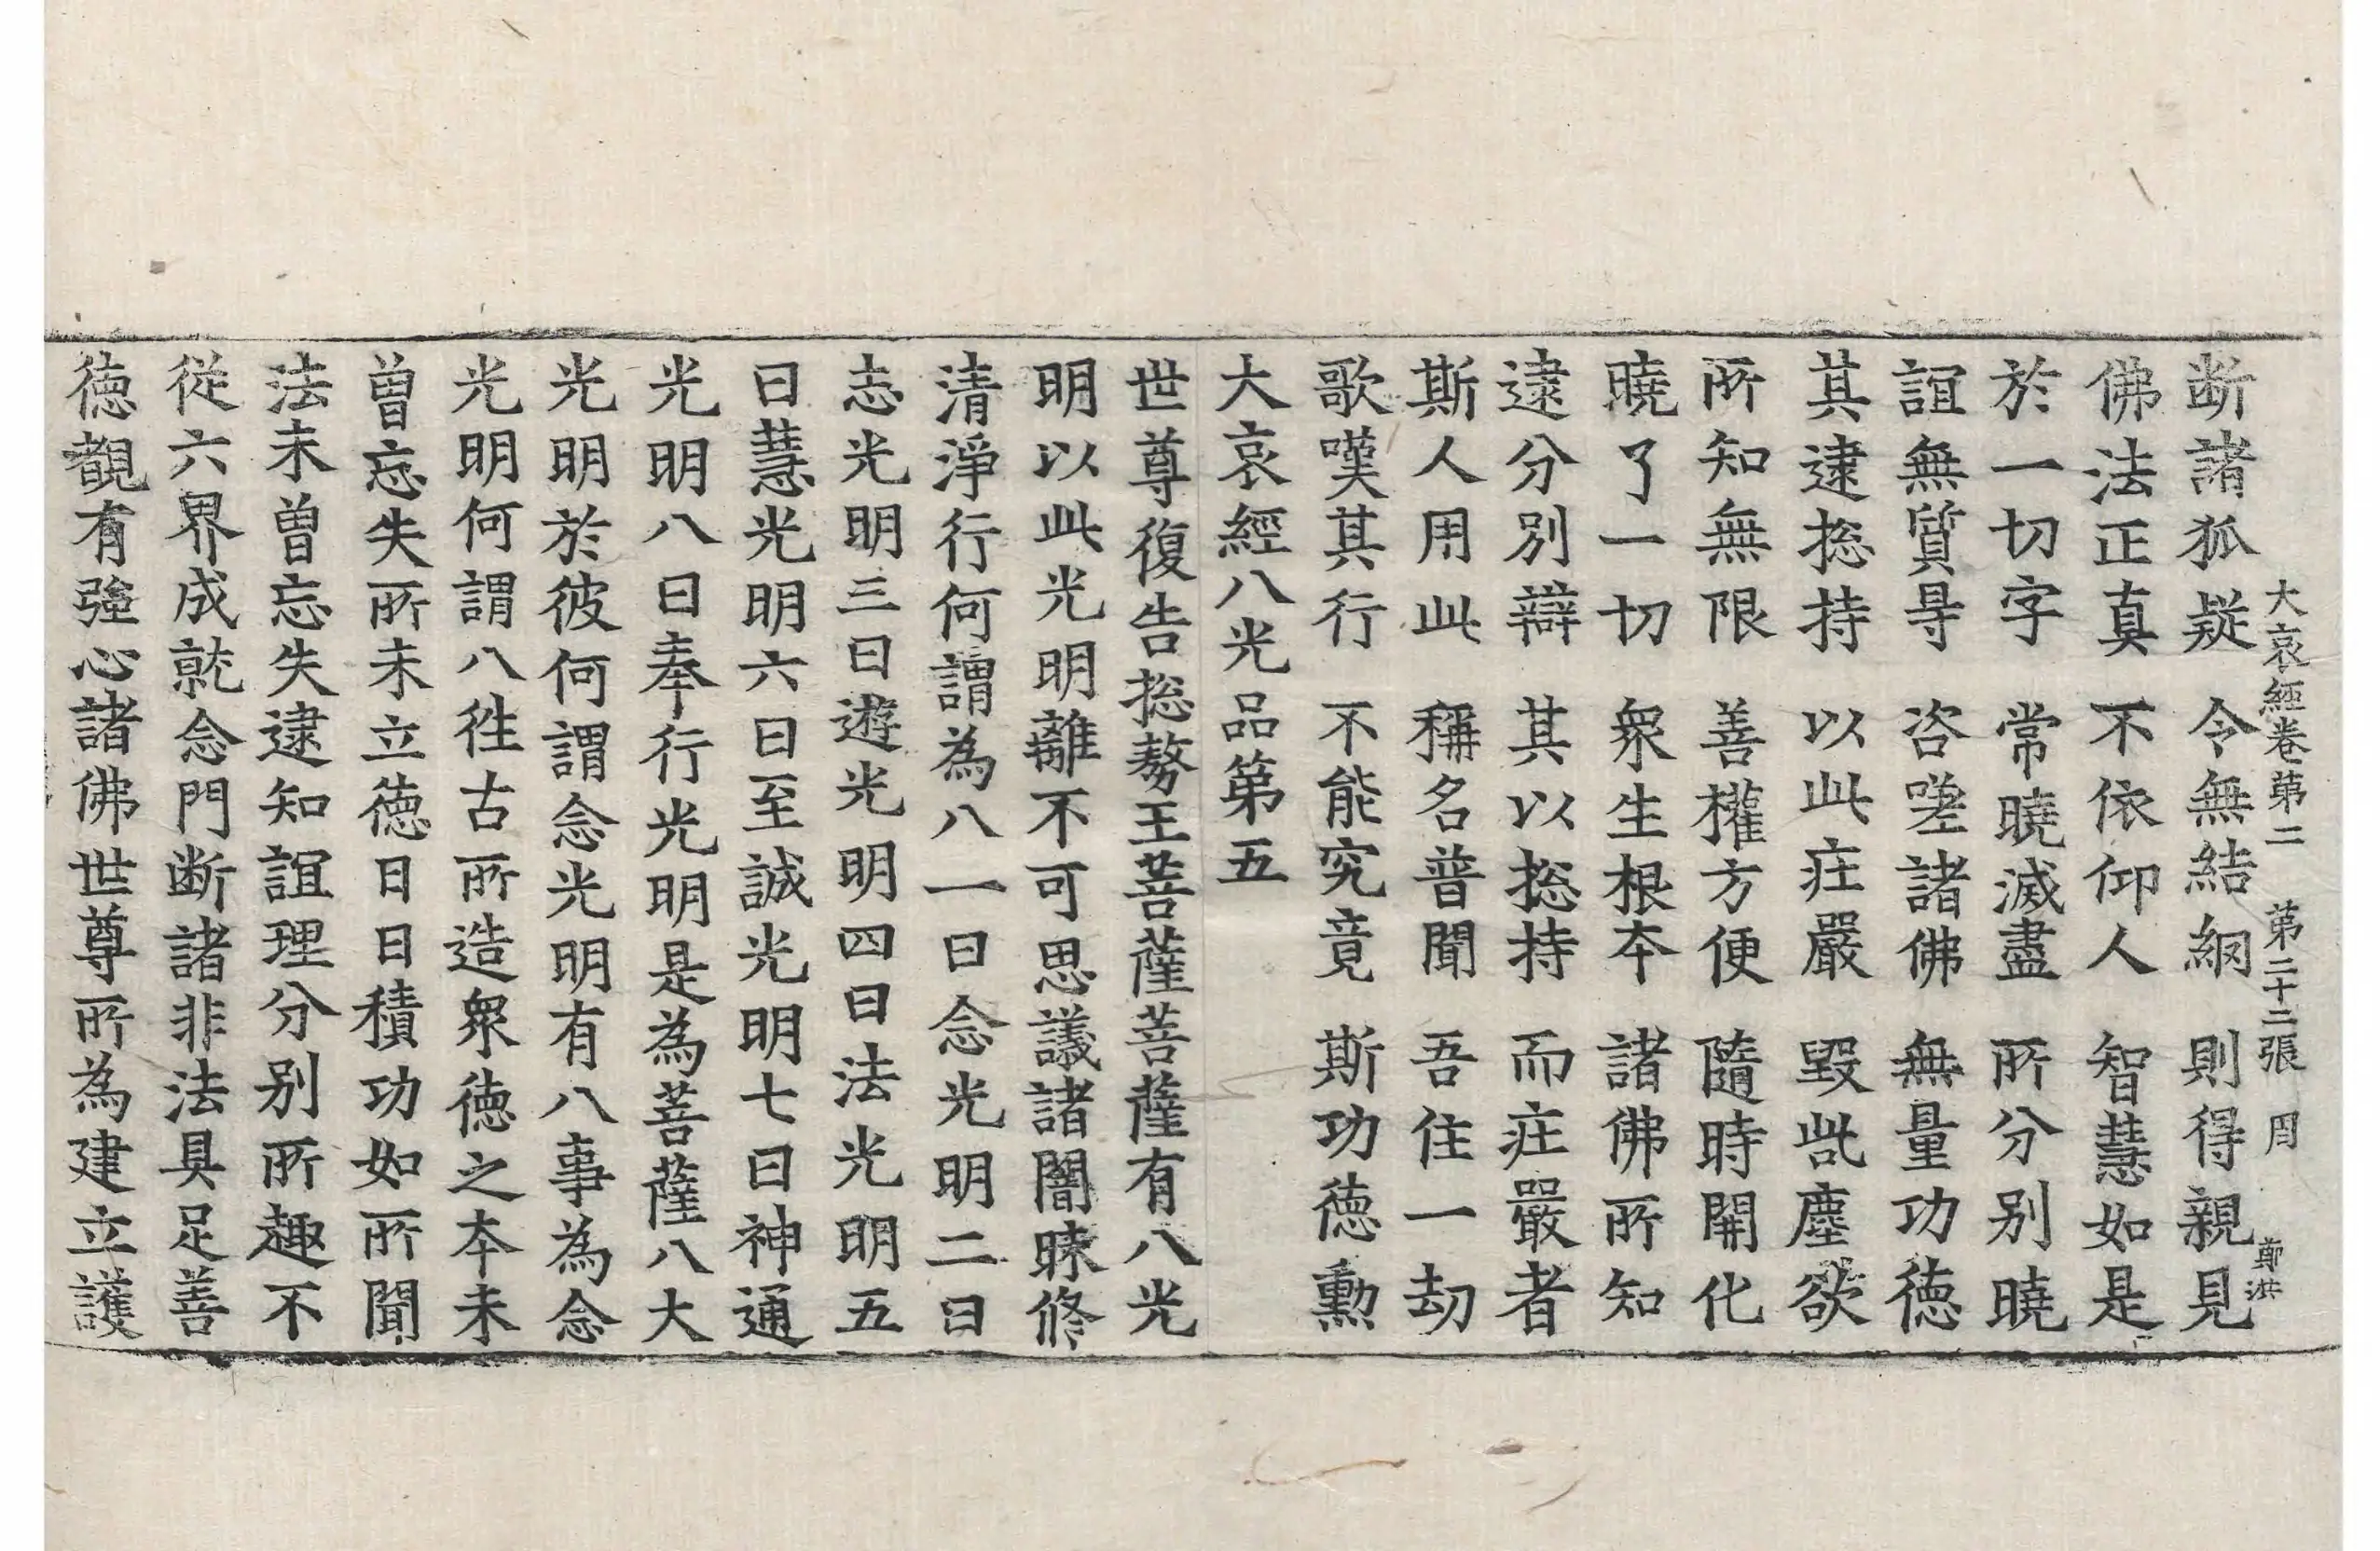 大哀經卷第二 第二十二張 周 鄭洪
断諸狐疑 令無結網 則得親見
佛法正真 不依仰人 智慧如是
於一切字 常曉滅盡 所分别曉
誼無質㝵 咨嗟諸佛 無量功德
其逮揔持 以此庄嚴 毀呰塵欲
所知無限 善權方便 隨時開化
曉了一切 衆生根本 諸佛所知
逮分别辯 其以揔持 而庄嚴者
斯人用此 稱名普聞 吾住一劫
歌嘆其行 不能究竟 斯功德勲
大哀經八光品第五
世尊復告揔勢王菩薩菩薩有八光
明以此光明離不可思議諸闇昧修
清淨行何謂為八一曰念光明二曰
志光明三曰遊光明四曰法光明五
曰慧光明六曰至誠光明七曰神通
光明八曰奉行光明是為菩薩八大
光明於彼何謂念光明有八事為念
光明何謂八徃古所造衆德之本未
曽忘失所未立德日日積功如所聞
法未曽忘失逮知誼理分别所趣不
從六界成就念門断諸非法具足善
德觀有強心諸佛世尊所為建立護